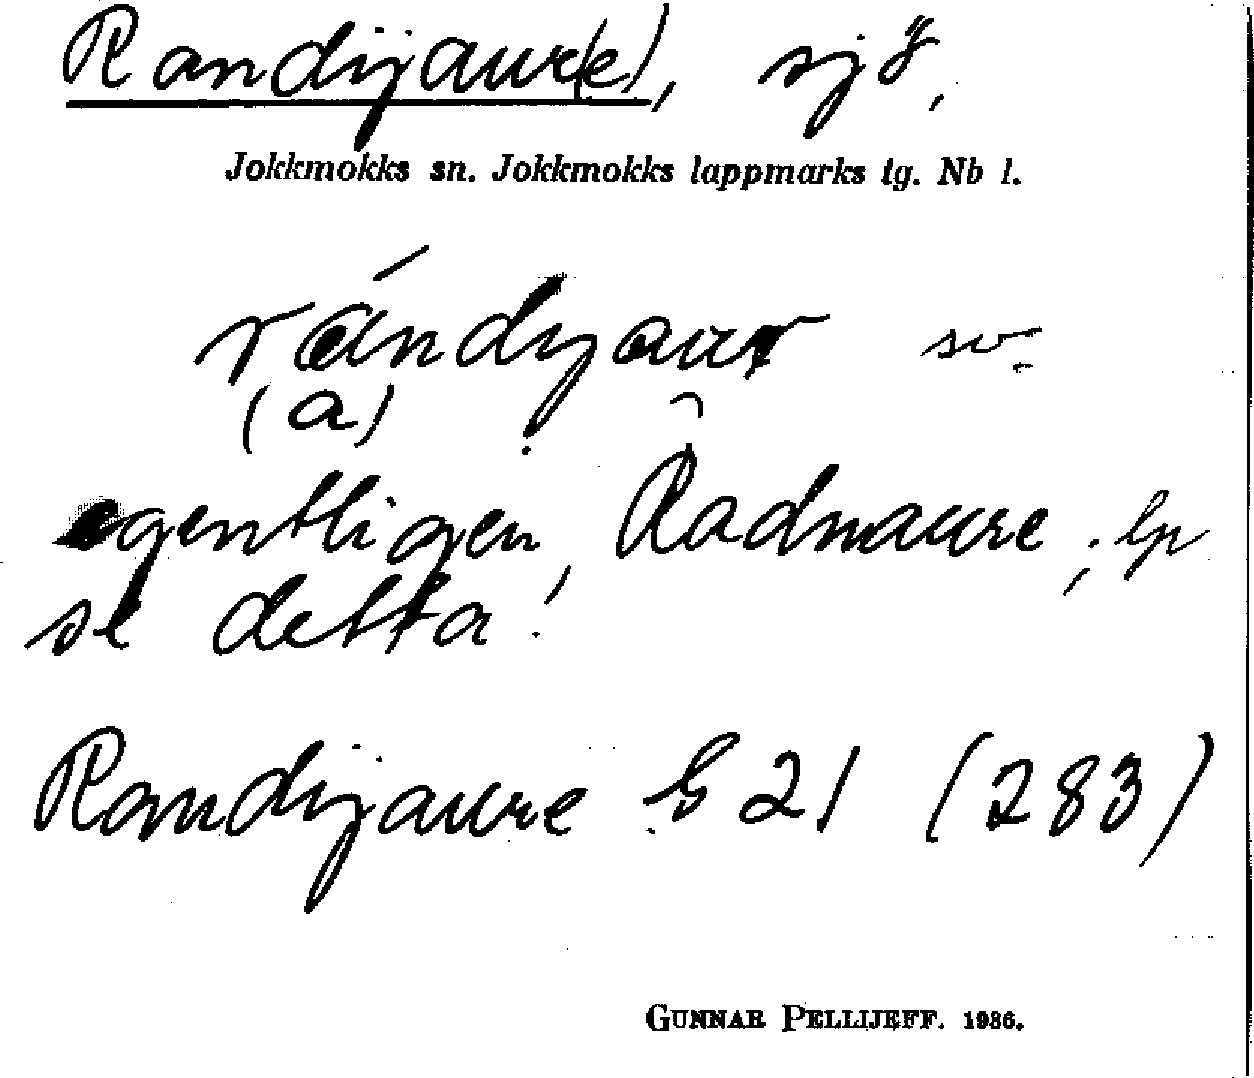 Randijaur(e), sjö,
Jokkmokks sn. Jokkmokks lappmarks tg. Nb l.
rándijaur sv.
(a)
egentligen, Radnaure, lp
se detta!
Randijaure G 21 (283)
GUNNAR PELLIJEFF. 1936.